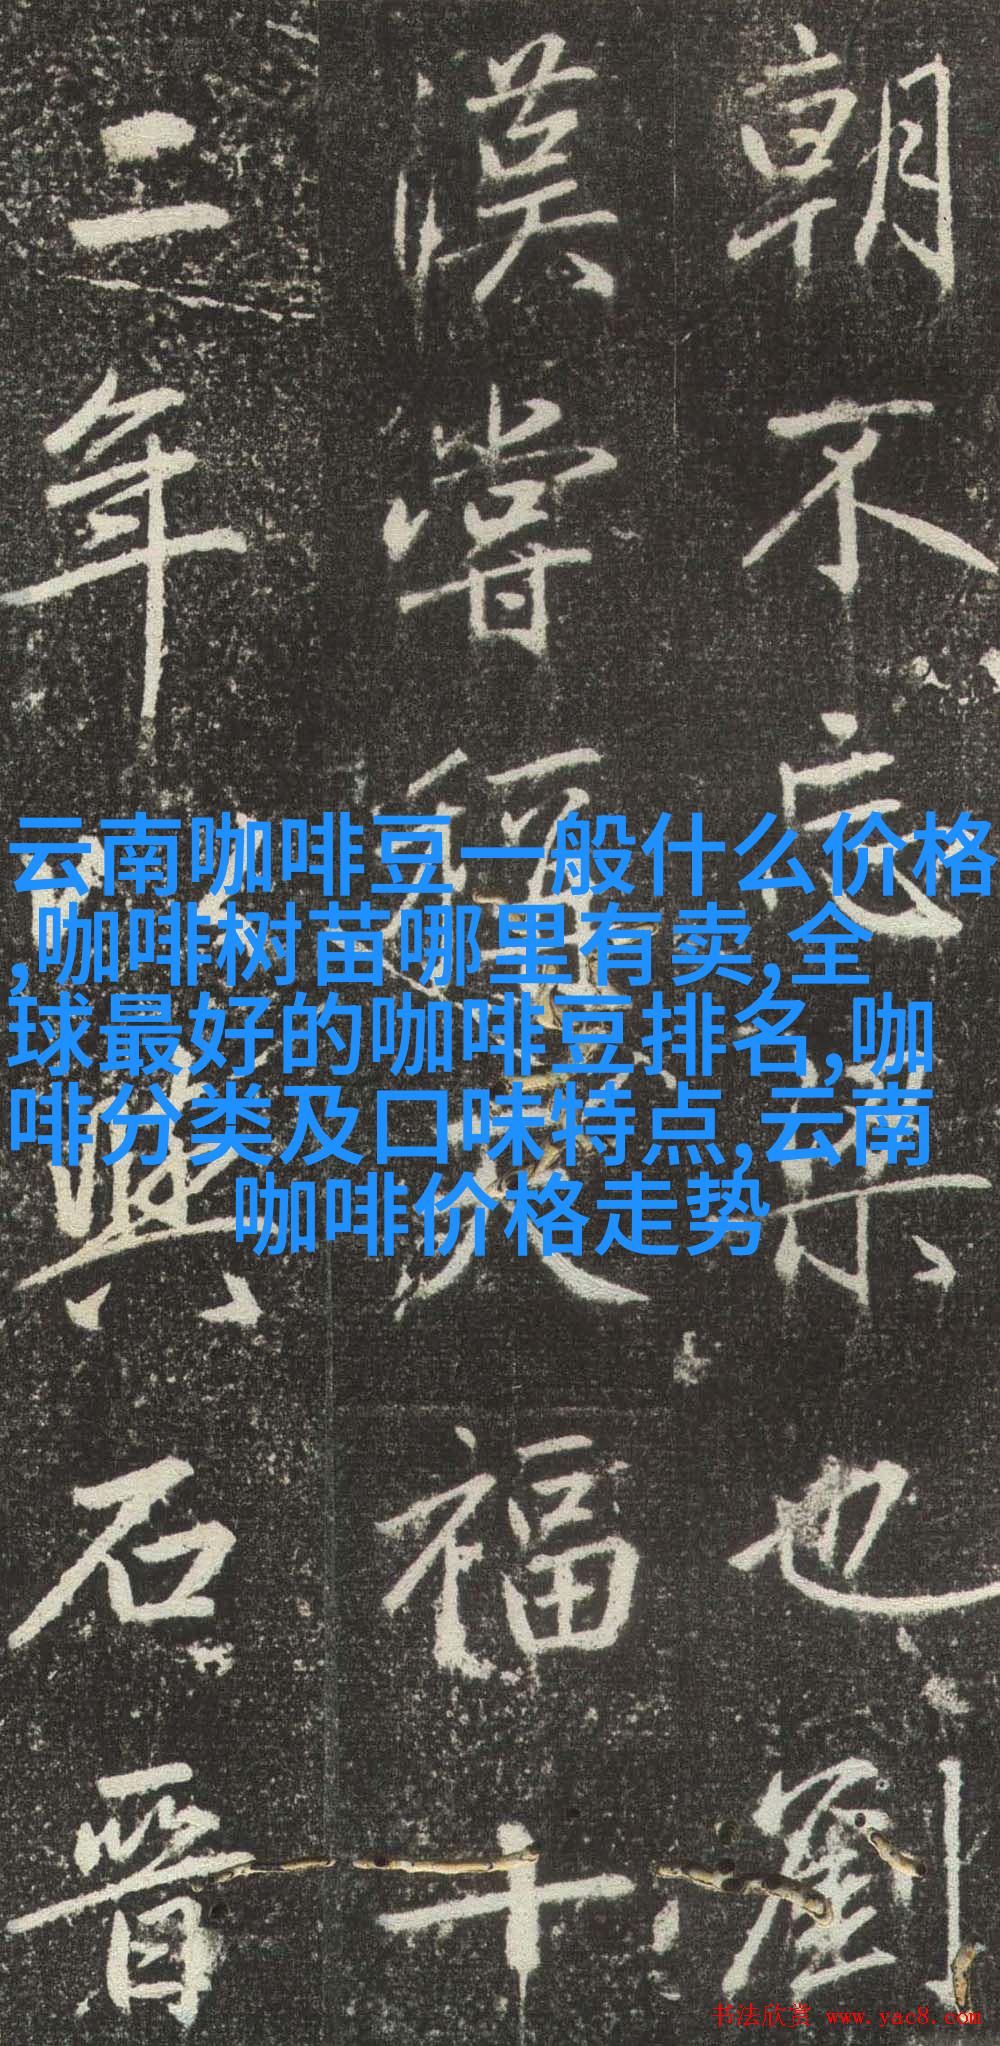 朝不忘樂也劉
漢嘗天福十
二年興石晉
云南咖啡豆一般什么价格
,咖啡树苗哪里有卖,全
球最好的咖啡豆排名,咖
啡分类及口味特点,云南
咖啡价格走势
书法欣赏 www.yac8.com